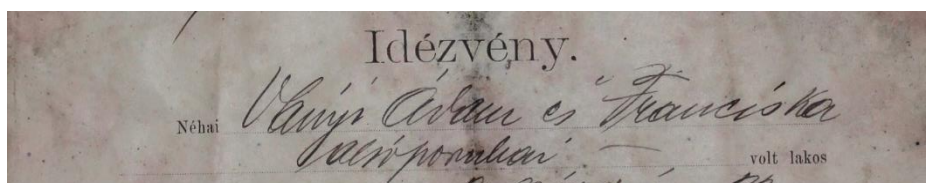 Idézvény.
Néhai Ványi Ádám és Franciska
alsóporubai volt lakos